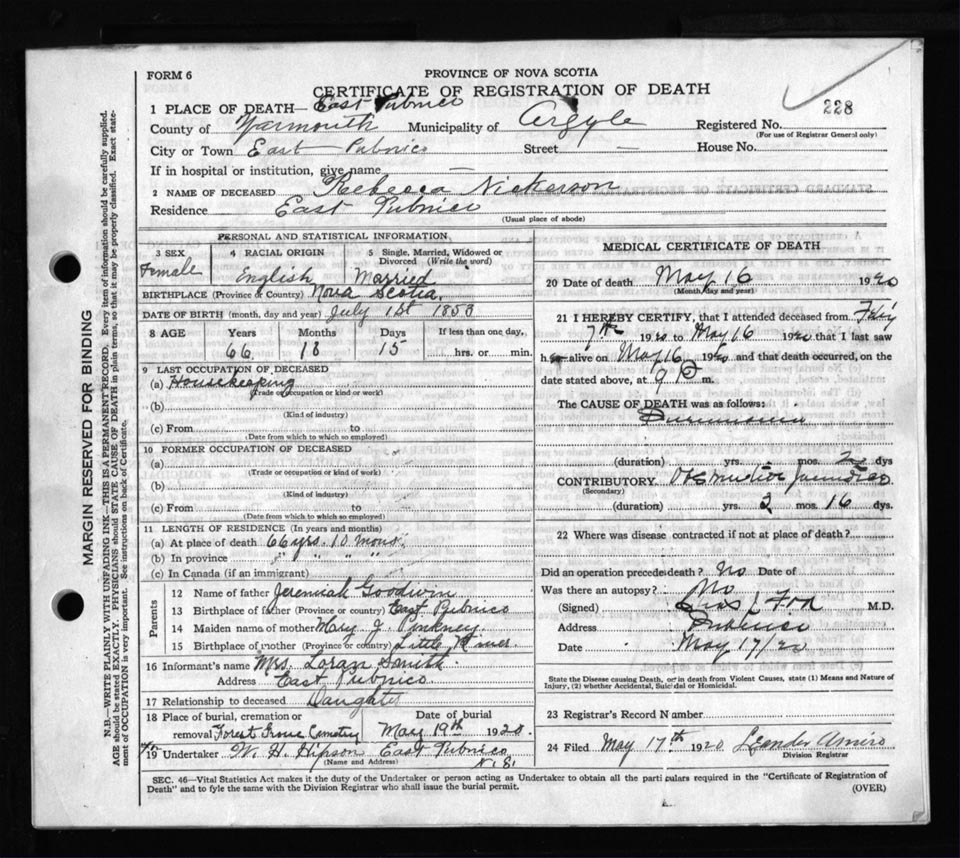 FORM 6
PROVINCE OF NOVA SCOTIA
CERTIFICATE OF REGISTRATION OF DEATH
228
1 PLACE OF DEATH— East Pubnico
County of Yarmouth Municipality of Argyle Registered No.
(For use of Registrar General only)
City or Town East Pubnico Street — House No.
If in hospital or institution, give name —
2 NAME OF DECEASED Rebecca Nickerson
Residence East Pubnico
(Usual place of abode)
PERSONAL AND STATISTICAL INFORMATION
3 SEX 4 RACIAL ORIGIN 5 Single, Married, Widowed or Divorced (Write the word)
Female English Married
BIRTHPLACE (Province or Country) Nova Scotia.
DATE OF BIRTH (month, day and year) July 1st 1853
8 AGE Years Months Days If less than one day,
66 10 15 hrs. or min.
9 LAST OCCUPATION OF DECEASED
(a) Housekeeping
(Trade or occupation or kind or work)
(b)
(Kind of industry)
(c) From to
(Date from which to which so employed)
10 FORMER OCCUPATION OF DECEASED
(a)
(Trade or occupation or kind of work)
(b)
(Kind of industry)
(c) From to
(Date from which to which so employed)
11 LENGTH OF RESIDENCE (In years and months)
(a) At place of death 66 yrs. 10 mons.
(b) In province " " " "
(c) In Canada (if an immigrant)
Parents
12 Name of father Jeremiah Goodwin
13 Birthplace of father (Province or country) East Pubnico
14 Maiden name of mother Mary J. Pinkney
15 Birthplace of mother (Province or country) Little River
16 Informant's name Mrs. Loran Smith
Address East Pubnico.
17 Relationship to deceased Daughter
18 Place of burial, cremation or removal Forest Grove Cemetery Date of burial May 19th 1920.
19 Undertaker W. H. Hipson East Pubnico
(Name and Address) N.S.
MEDICAL CERTIFICATE OF DEATH
20 Date of death May 16 1920
(Month, day and year)
21 I HEREBY CERTIFY, that I attended deceased from Feby
7th 1920 to May 16 1920 that I last saw
her alive on May 16 1920 and that death occurred, on the
date stated above, at 9 P m.
The CAUSE OF DEATH was as follows:
Pneumonia
(duration) yrs. mos. 2 dys
CONTRIBUTORY. Obstructive Jaundice.
(Secondary)
(duration) yrs. 3 mos. 16 dys.
22 Where was disease contracted if not at place of death?
Did an operation precede death? No Date of
Was there an autopsy? No
(Signed) Ford M.D.
Address Pubnico
Date May 17/20
State the Disease causing Death, or in death from Violent Causes, state (1) Means and Nature of
Injury, (2) whether Accidental, Suicidal or Homicidal.
23 Registrar's Record Number
24 Filed May 17th 1920 Leander Amiro
Division Registrar
SEC. 46—Vital Statistics Act makes it the duty of the Undertaker or person acting as Undertaker to obtain all the particulars required in the "Certificate of Registration of
Death" and to fyle the same with the Division Registrar who shall issue the burial permit. (OVER)
MARGIN RESERVED FOR BINDING
N.B.—WRITE PLAINLY WITH UNFADING INK—THIS IS A PERMANENT RECORD. Every item of information should be carefully supplied.
AGE should be stated EXACTLY. PHYSICIANS should STATE CAUSE OF DEATH in plain terms, so that it may be properly classified. Exact state-
ment of OCCUPATION is very important. See instructions on back of Certificate.